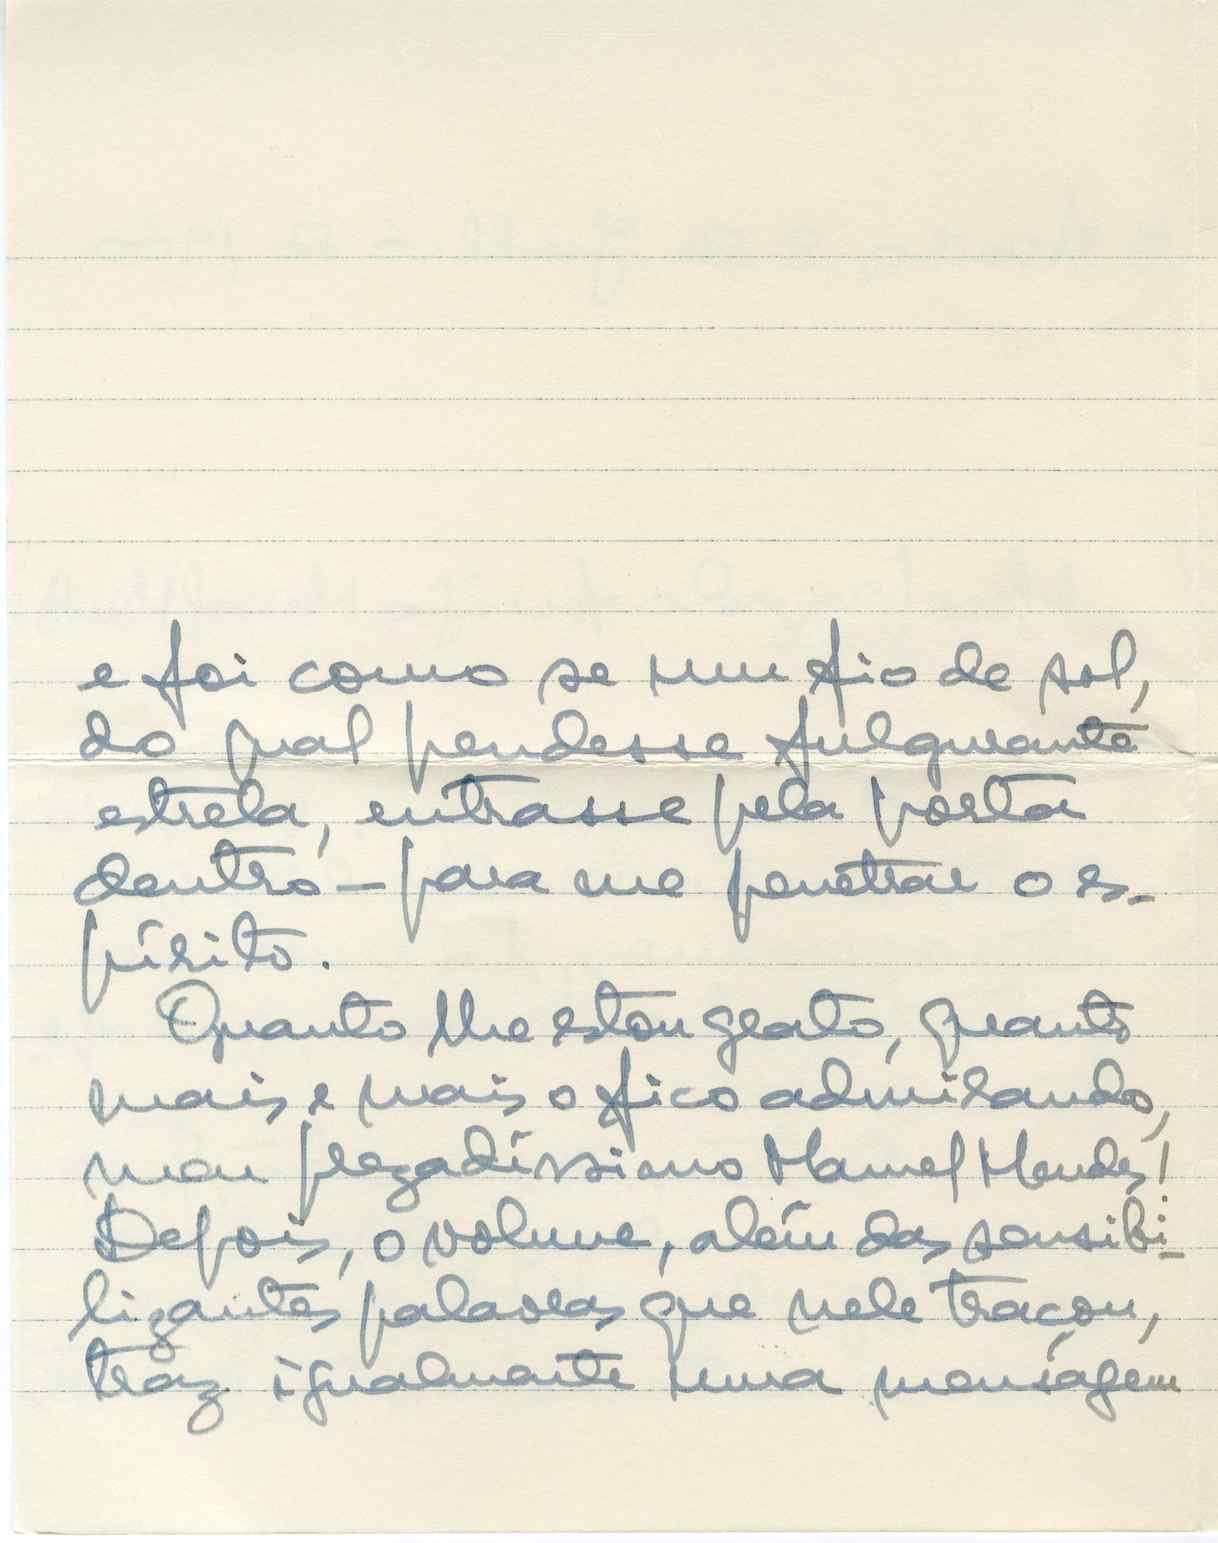 e foi como se um fio de sol,
do qual pendesse fulgurante
estrela, entrasse pela porta
dentro — para me penetrar o es-
pírito.
Quanto lhe estou grato, quanto
mais e mais o fico admirando,
meu prezadíssimo Manuel Mendes!
Depois, o volume, além das sensibi-
lizantes palavras que nele traçou,
traz igualmente uma mensagem